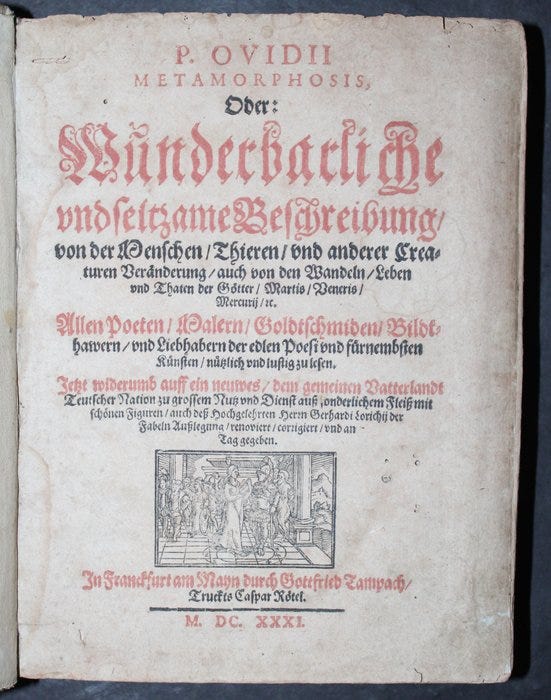 P. OVIDII
METAMORPHOSIS,
Oder:
Wunderbarliche
vnd seltzame Beschreibung/
von der Menschen/ Thieren/ vnd anderer Crea-
turen Veränderung/ auch von den Wandeln/ Leben
vnd Thaten der Götter/ Martis/ Veneris/
Mercurij/ ꝛc.
Allen Poeten/ Malern/ Goldtschmiden/ Bildt-
hawern/ vnd Liebhabern der edlen Poesi vnd fürnembsten
Künsten/ nützlich vnd lustig zu lesen.
Jetzt widerumb auff ein neuwes/ dem gemeinen Vatterlandt
Teutscher Nation zu grossem Nutz vnd Dienst auß sonderlichem Fleiß mit
schönen Figuren/ auch deß Hochgelehrten Herrn Gerhardi Lorichij der
Fabeln Außlegung/ renoviert/ corrigiert/ vnd an
Tag gegeben.
In Franckfurt am Mayn durch Gottfried Tampach/
Truckts Caspar Rötel.
M. DC. XXXI.